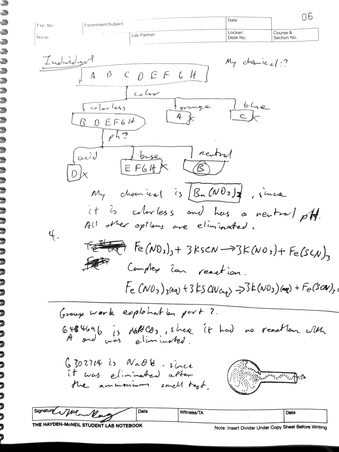 06
Exp. No.
Experiment/Subject
Date
Name
Lab Partner
Locker/
Desk No.
Course &
Section No.
Individual
My chemical:?
A B C D E F G H
color
colorless
orange
blue
B D E F G H
A x
C x
pH?
acid
base
neutral
D x
E F G H x
B
My chemical is Ba(NO3)2, since
it is colorless and has a neutral pH.
All other options are eliminated.
4.
Fe(NO3)3 + 3KSCN → 3K(NO3) + Fe(SCN)3
Complex ion reaction.
Fe(NO3)3(aq) + 3KSCN(aq) → 3K(NO3)(aq) + Fe(SCN)3
Group work explanation part 2.
is , since it had no reaction with
A and was eliminated.
is NaOH, since
it was eliminated after
the ammonium smell test.
Signature
Date
Witness/TA
Date
THE HAYDEN-McNEIL STUDENT LAB NOTEBOOK
Note: Insert Divider Under Copy Sheet Before Writing